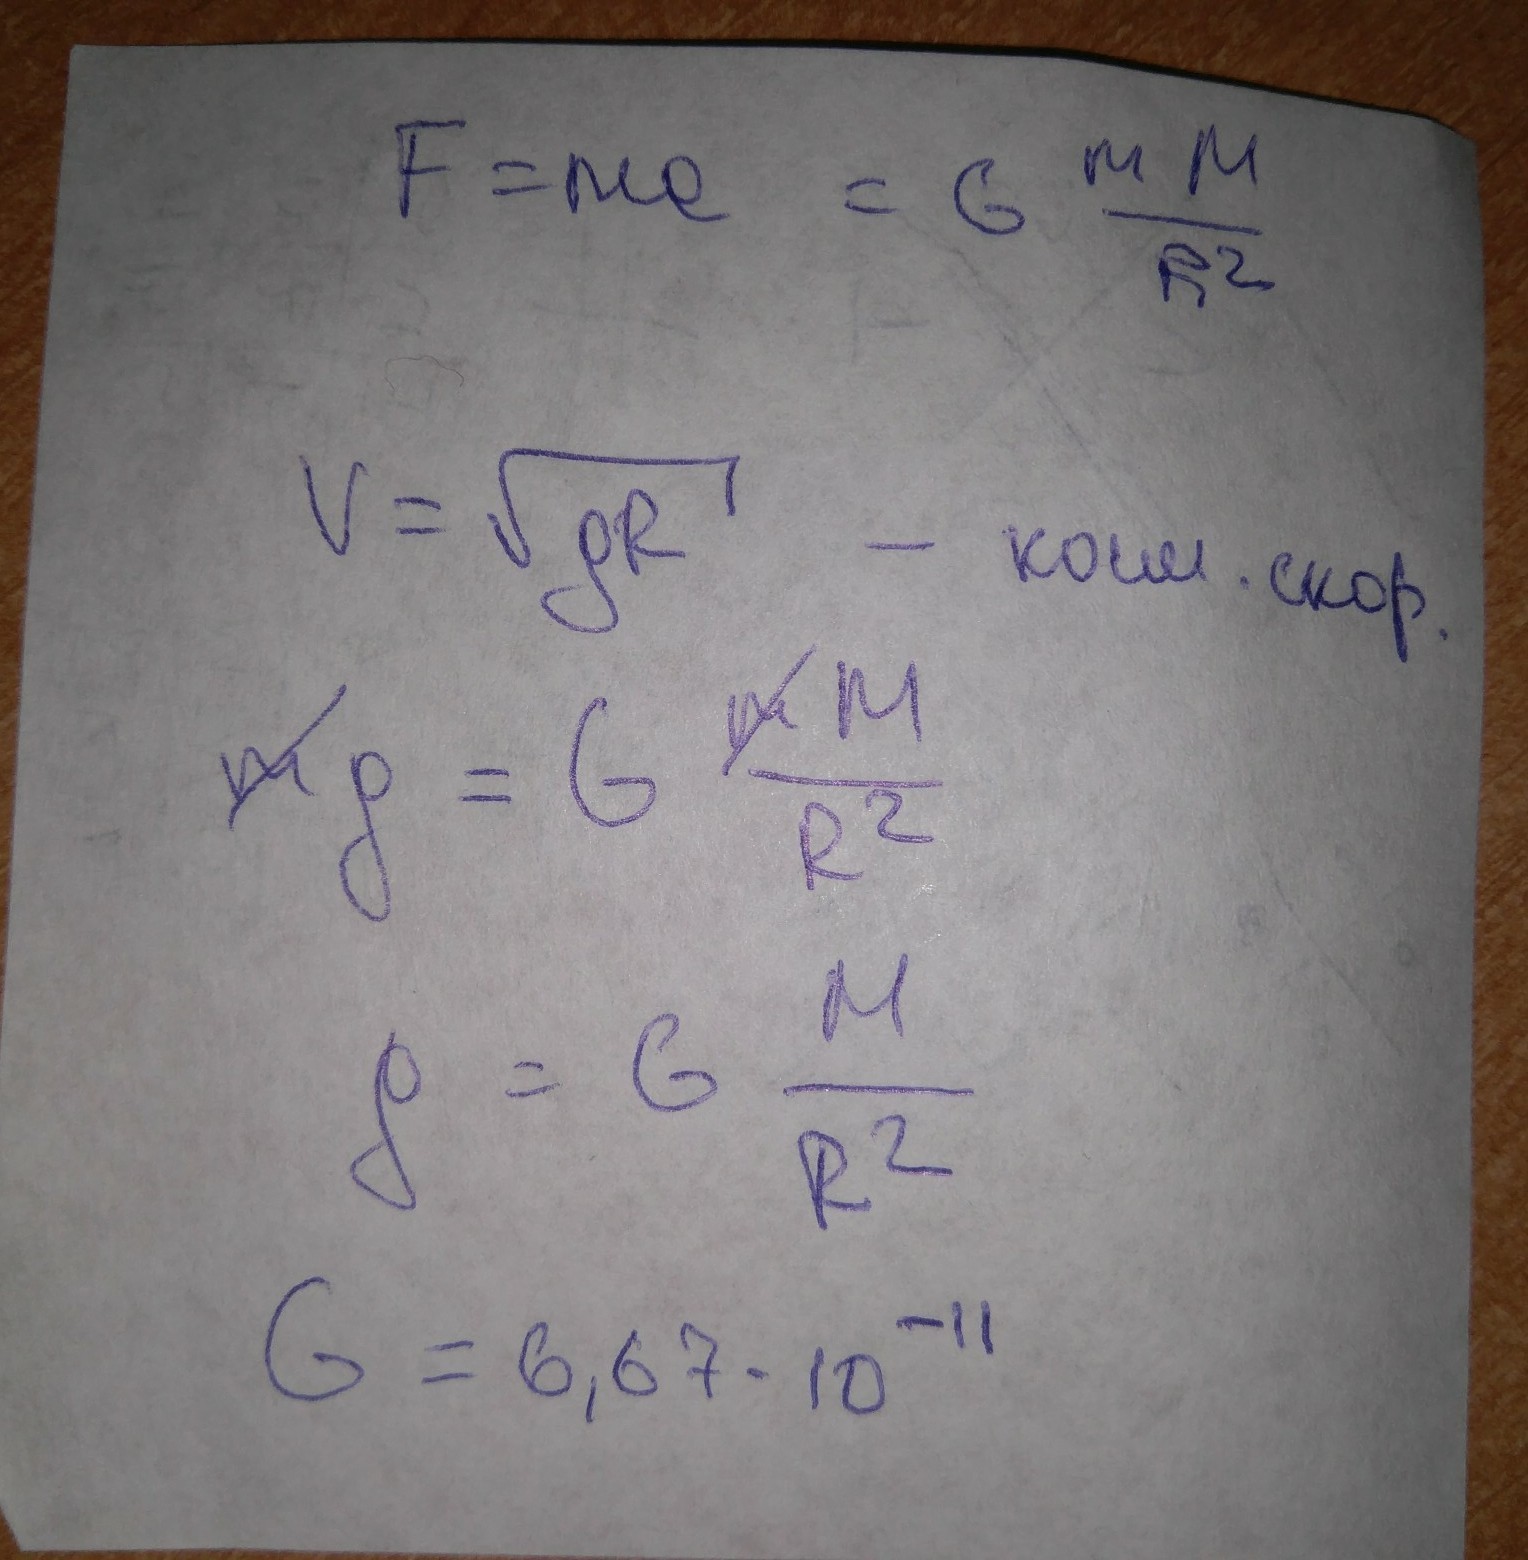 F = ma = G mM/R²
V = √gR – косм. скор.
mg = G mM/R²
g = G M/R²
G = 6,67 · 10⁻¹¹